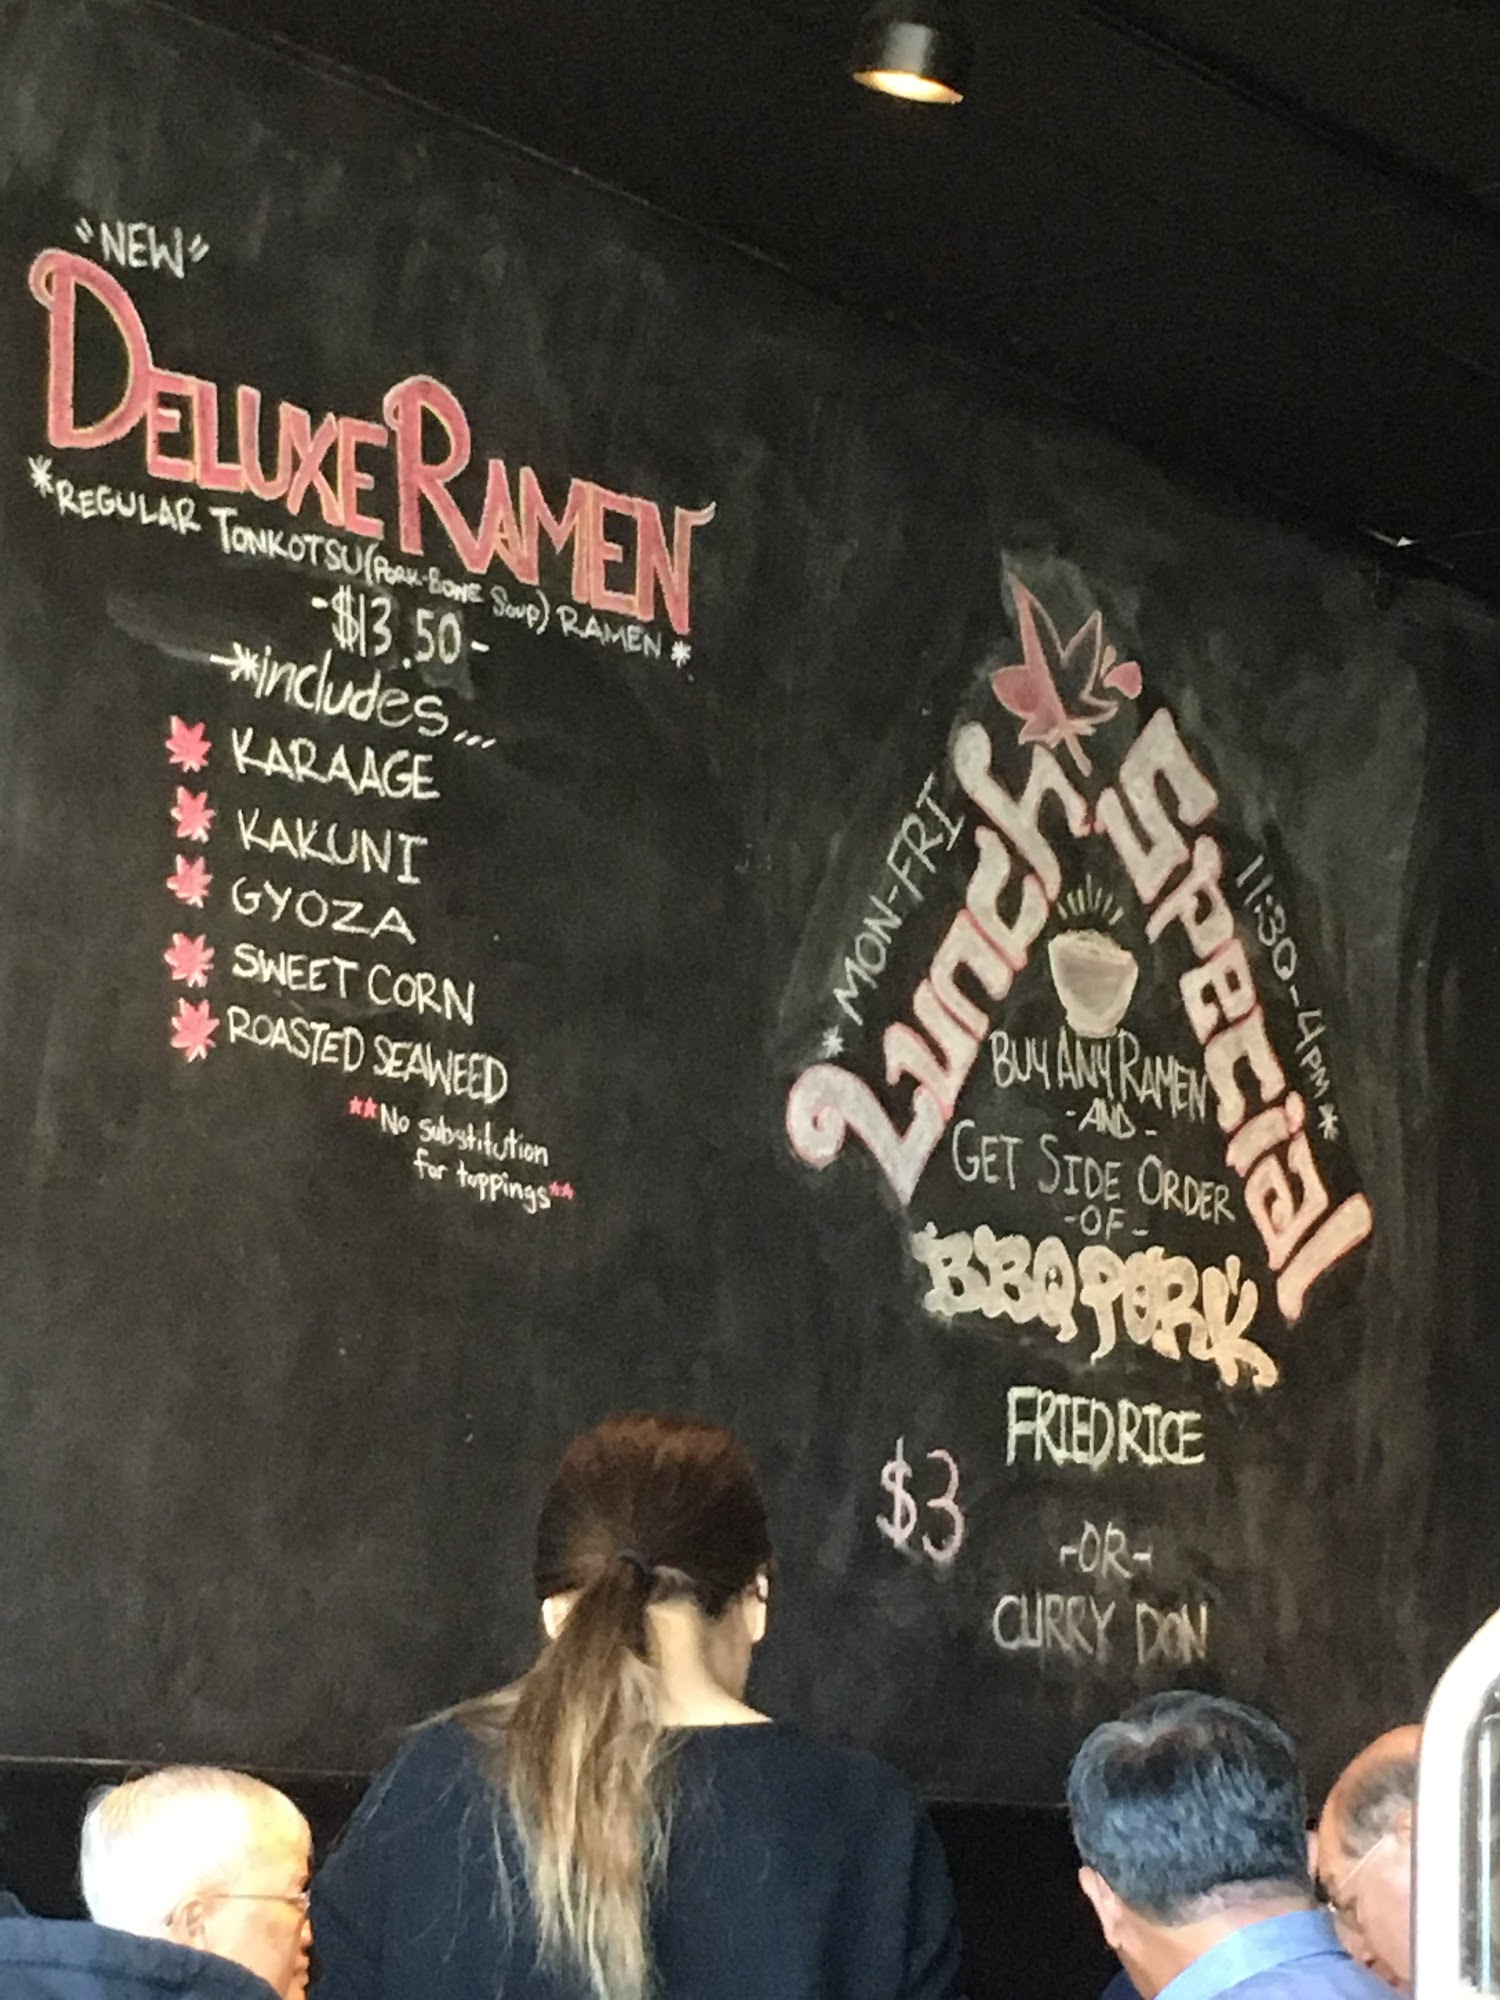 "NEW"
DELUXE RAMEN
*REGULAR TONKOTSU (PORK-BONE SOUP) RAMEN*
-$13.50-
→*includes...
KARAAGE
KAKUNI
GYOZA
SWEET CORN
ROASTED SEAWEED
**No substitution
for toppings**
Lunch Special
*MON-FRI
11:30-4PM*
BUY ANY RAMEN
-AND-
GET SIDE ORDER
-OF-
BBQ PORK
FRIED RICE
$3
-OR-
CURRY DON